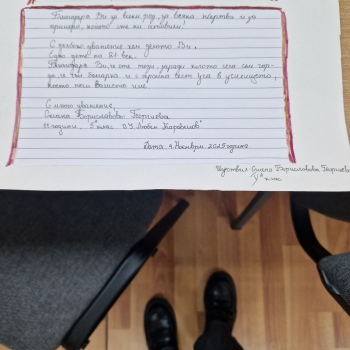 Благодаря Ви за всеки ред, за всяка жертва и за
примера, който сте ни оставили!
С дълбоко уважение към делото Ви,
Едно дете на 21 век.
Благодаря Ви, че сте този, заради когото сега съм гор-
да, че съм българка и с гордост всеки ден уча в училището,
което носи Вашето име.
С много уважение,
Сияна Бориславова Георгиева
11 години, 5 клас ОУ „Любен Каравелов"
Дата: 4 Ноември 2025 година
Изготвил: Сияна Бориславова Георгиева
клас